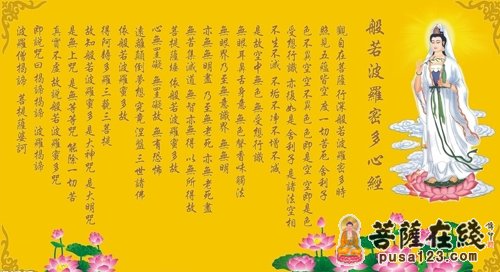 般若波羅蜜多心經
觀自在菩薩 行深般若波羅蜜多時
照見五蘊皆空 度一切苦厄 舍利子
色不異空 空不異色 色即是空 空即是色
受想行識 亦復如是 舍利子 是諸法空相
不生不滅 不垢不淨 不增不減
是故空中無色 無受想行識
無眼耳鼻舌身意 無色聲香味觸法
無眼界 乃至無意識界 無無明
亦無無明盡 乃至無老死 亦無老死盡
無苦集滅道 無智亦無得 以無所得故
菩提薩埵 依般若波羅蜜多故
心無罣礙 無罣礙故 無有恐怖
遠離顛倒夢想 究竟涅盤 三世諸佛
依般若波羅蜜多故
得阿耨多羅三藐三菩提
故知般若波羅蜜多 是大神咒 是大明咒
是無上咒 是無等等咒 能除一切苦
真實不虛 故說般若波羅蜜多咒
即說咒曰 揭諦揭諦 波羅揭諦
波羅僧揭諦 菩提薩婆訶
菩薩在綫
pusa123.com